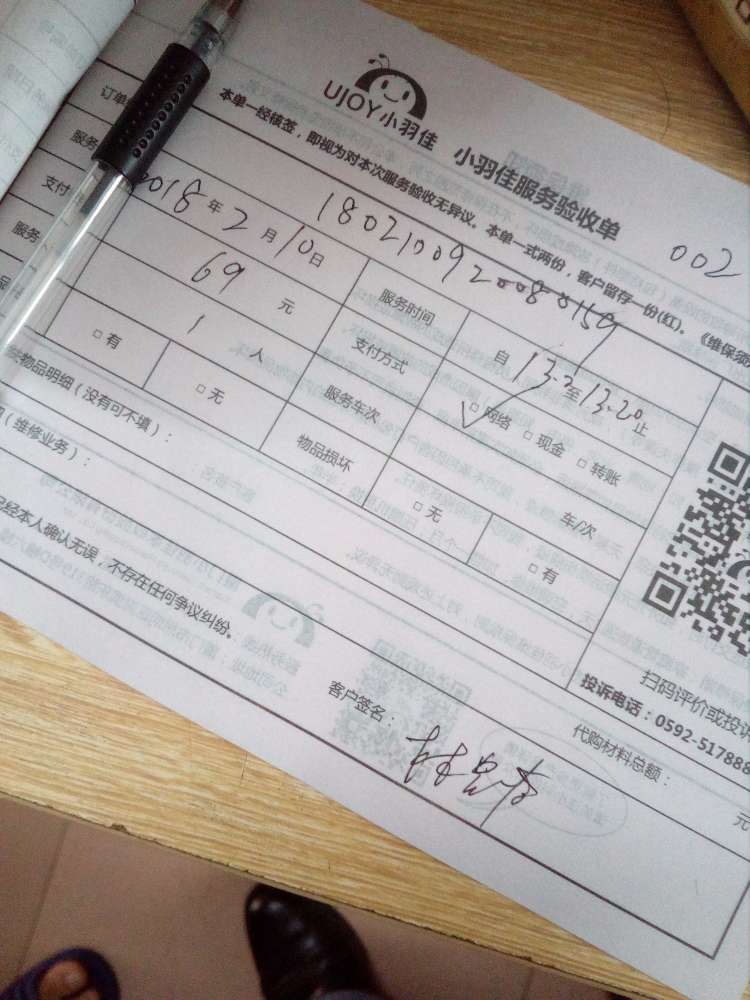 UJOY小羽佳 小羽佳服务验收单
本单一经核签，即视为对本次服务验收无异议。本单一式两份，客户留存一份(红)。《维保须
002
订单 1802100920080159
服务 2018年2月10日 服务时间 自13.2至13.20止
支付 69元 支付方式 □网络 □现金 □转账
服务 1人 服务车次 车/次
□有 □无 物品损坏 □无 □有
物品明细（没有可不填）：
（维修业务）：
扫码评价或投诉
投诉电话：0592-517888
代购材料总额： 元
已经本人确认无误，不存在任何争议纠纷。
客户签名：